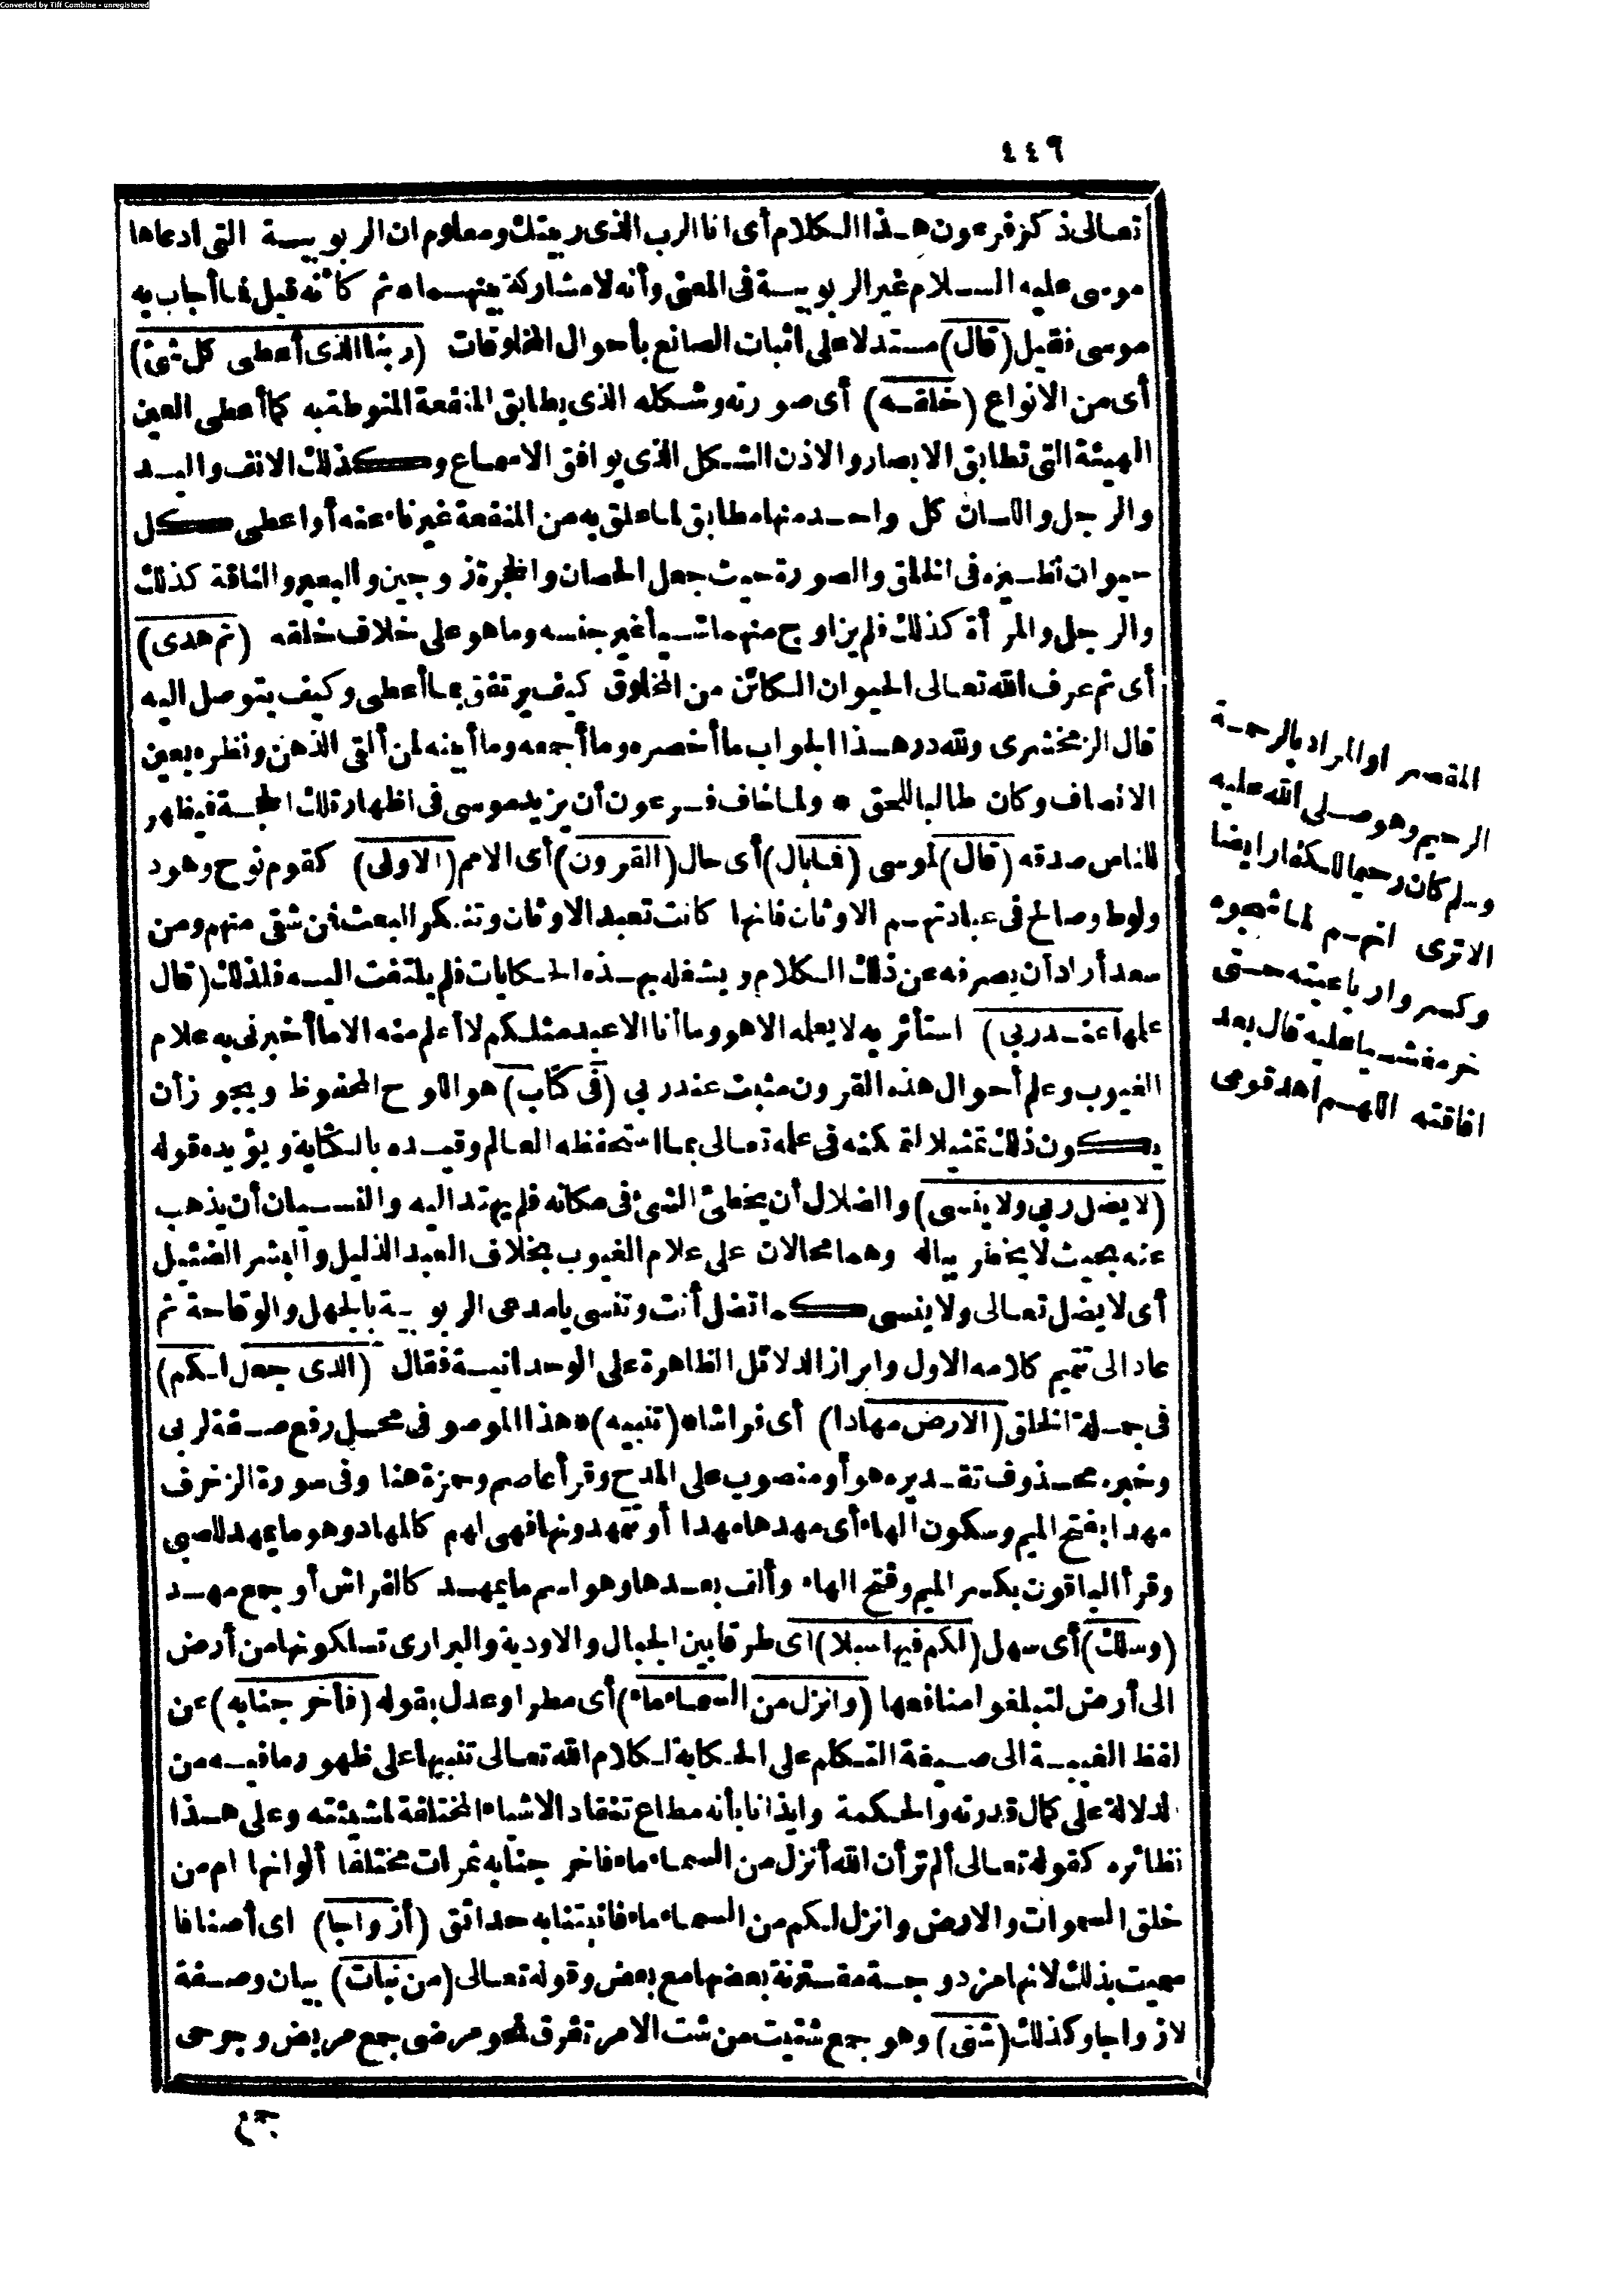 Converted by Tiff Combine - unregistered
٤٤٩
تعالى ذكر فرعون هذا الكلام أى انا الرب الذى ربيتك ومعلوم ان الربوبية التى ادعاها
موسى عليه السلام غير الربوبية فى المعنى وأنه لا مشاركة بينهما ه ثم كأنه قيل فما أجاب به
موسى فقيل (قال) مستدلا على اثبات الصانع بأحوال المخلوقات (ربنا الذى أعطى كل شئ)
أى من الانواع (خلقه) أى صورته وشكله الذى يطابق المنفعة المنوطة به كما أعطى العين
الهيئة التى تطابق الابصار والاذن الشكل الذى يوافق الاسماع وكذلك الانف واليد
والرجل واللسان كل واحد منها مطابق لما علق به من المنفعة غير ناء عنه أو اعطى كل
حيوان نظيره فى الخلق والصورة حيث جعل الحصان والحجرة زوجين والبعير والناقة كذلك
والرجل والمرأة كذلك فلم يزاوج منهما شيأ غير جنسه وما هو على خلاف خلقه (ثم هدى)
أى ثم عرف الله تعالى الحيوان الكائن من المخلوق كيف يرتفق بما أعطى وكيف يتوصل اليه
قال الزمخشرى ولله در هذا الجواب ما أخصره وما أجمعه وما أبينه لمن ألقى الذهن ونظره بعين
الانصاف وكان طالبا للحق * ولما خاف فرعون أن يزيد موسى فى اظهار تلك الحجة فيظهر
للناس صدقه (قال) لموسى (فما بال) أى حال (القرون) أى الامم (الاولى) كقوم نوح وهود
ولوط وصالح فى عبادتهم الاوثان فانها كانت تعبد الاوثان وتنكر البعث فمن شقى منهم ومن
سعد أراد أن يصرفه عن ذلك الكلام ويشغله بهذه الحكايات فلم يلتفت اليه فلذلك (قال
علمها عند ربى) استأثر به لا يعلمه الا هو وما أنا الا عبد مثلكم لا أعلم منه الا ما أخبرنى به علام
الغيوب وعلم أحوال هذه القرون مثبت عند ربى (فى كتاب) هو اللوح المحفوظ ويجوز أن
يكون ذلك تمثيلا لتمكنه فى علمه تعالى بما استحفظه العالم وقيده بالكتابة ويؤيده قوله
(لا يضل ربى ولا ينسى) والضلال أن يخطئ الشئ فى مكانه فلم يهتد اليه والنسيان أن يذهب
عنه بحيث لا يخطر بباله وهما محالان على علام الغيوب بخلاف العبد الذليل والبشر الضئيل
أى لا يضل تعالى ولا ينسى كما تضل أنت وتنسى يا مدعى الربوبية بالجهل والوقاحة ثم
عاد الى تتميم كلامه الاول وابراز الدلائل الظاهرة على الوحدانية فقال (الذى جعل لكم)
فى جملة الخلق (الارض مهادا) أى فراشا * (تنبيه) * هذا الموصو فى محل رفع صفة لربى
وخبره محذوف تقديره هو أو منصوب على المدح وقرأ عاصم وحمزة هنا وفى سورة الزخرف
مهدا بفتح الميم وسكون الهاء أى مهدها مهدا أو تتمهدونها فهى لهم كالمهاد وهو ما يمهد للصبى
وقرأ الباقون بكسر الميم وفتح الهاء وألف بعدها وهو اسم ما يمهد كالفراش أو جمع مهد
(وسلك) أى سهل (لكم فيها سبلا) اى طرقا بين الجبال والاودية والبرارى تسلكونها من أرض
الى أرض لتبلغوا منافعها (وانزل من السماء ماء) أى مطرا وعدل بقوله (فأخرجنا به) عن
لفظ الغيبة الى صيغة التكلم على الحكاية لكلام الله تعالى تنبيها على ظهور ما فيه من
لدلالة على كمال قدرته والحكمة وايذانا بأنه مطاع تنقاد الاشياء المختلفة لمشيئته وعلى هذا
نظائره كقوله تعالى ألم تر أن الله أنزل من السماء ماء فاخرجنا به ثمرات مختلفا ألوانها ام من
خلق السموات والارض وانزل لكم من السماء ماء فانبتنا به حدائق (أزواجا) اى أصنافا
سميت بذلك لانها مزدوجة مقترنة بعضها مع بعض وقوله تعالى (من نبات) بيان وصفة
لازواجا وكذلك (شتى) وهو جمع شتيت من شت الامر تفرق نحو مرضى جمع مريض وجرحى
المقصر او المراد بالرحمة
الرحيم وهو صلى الله عليه
وسلم كان رحيما للكفار ايضا
الا ترى انهم لما شجوه
وكسروا رباعيته حتى
خر مغشيا عليه قال بعد
افاقته اللهم اهد قومى